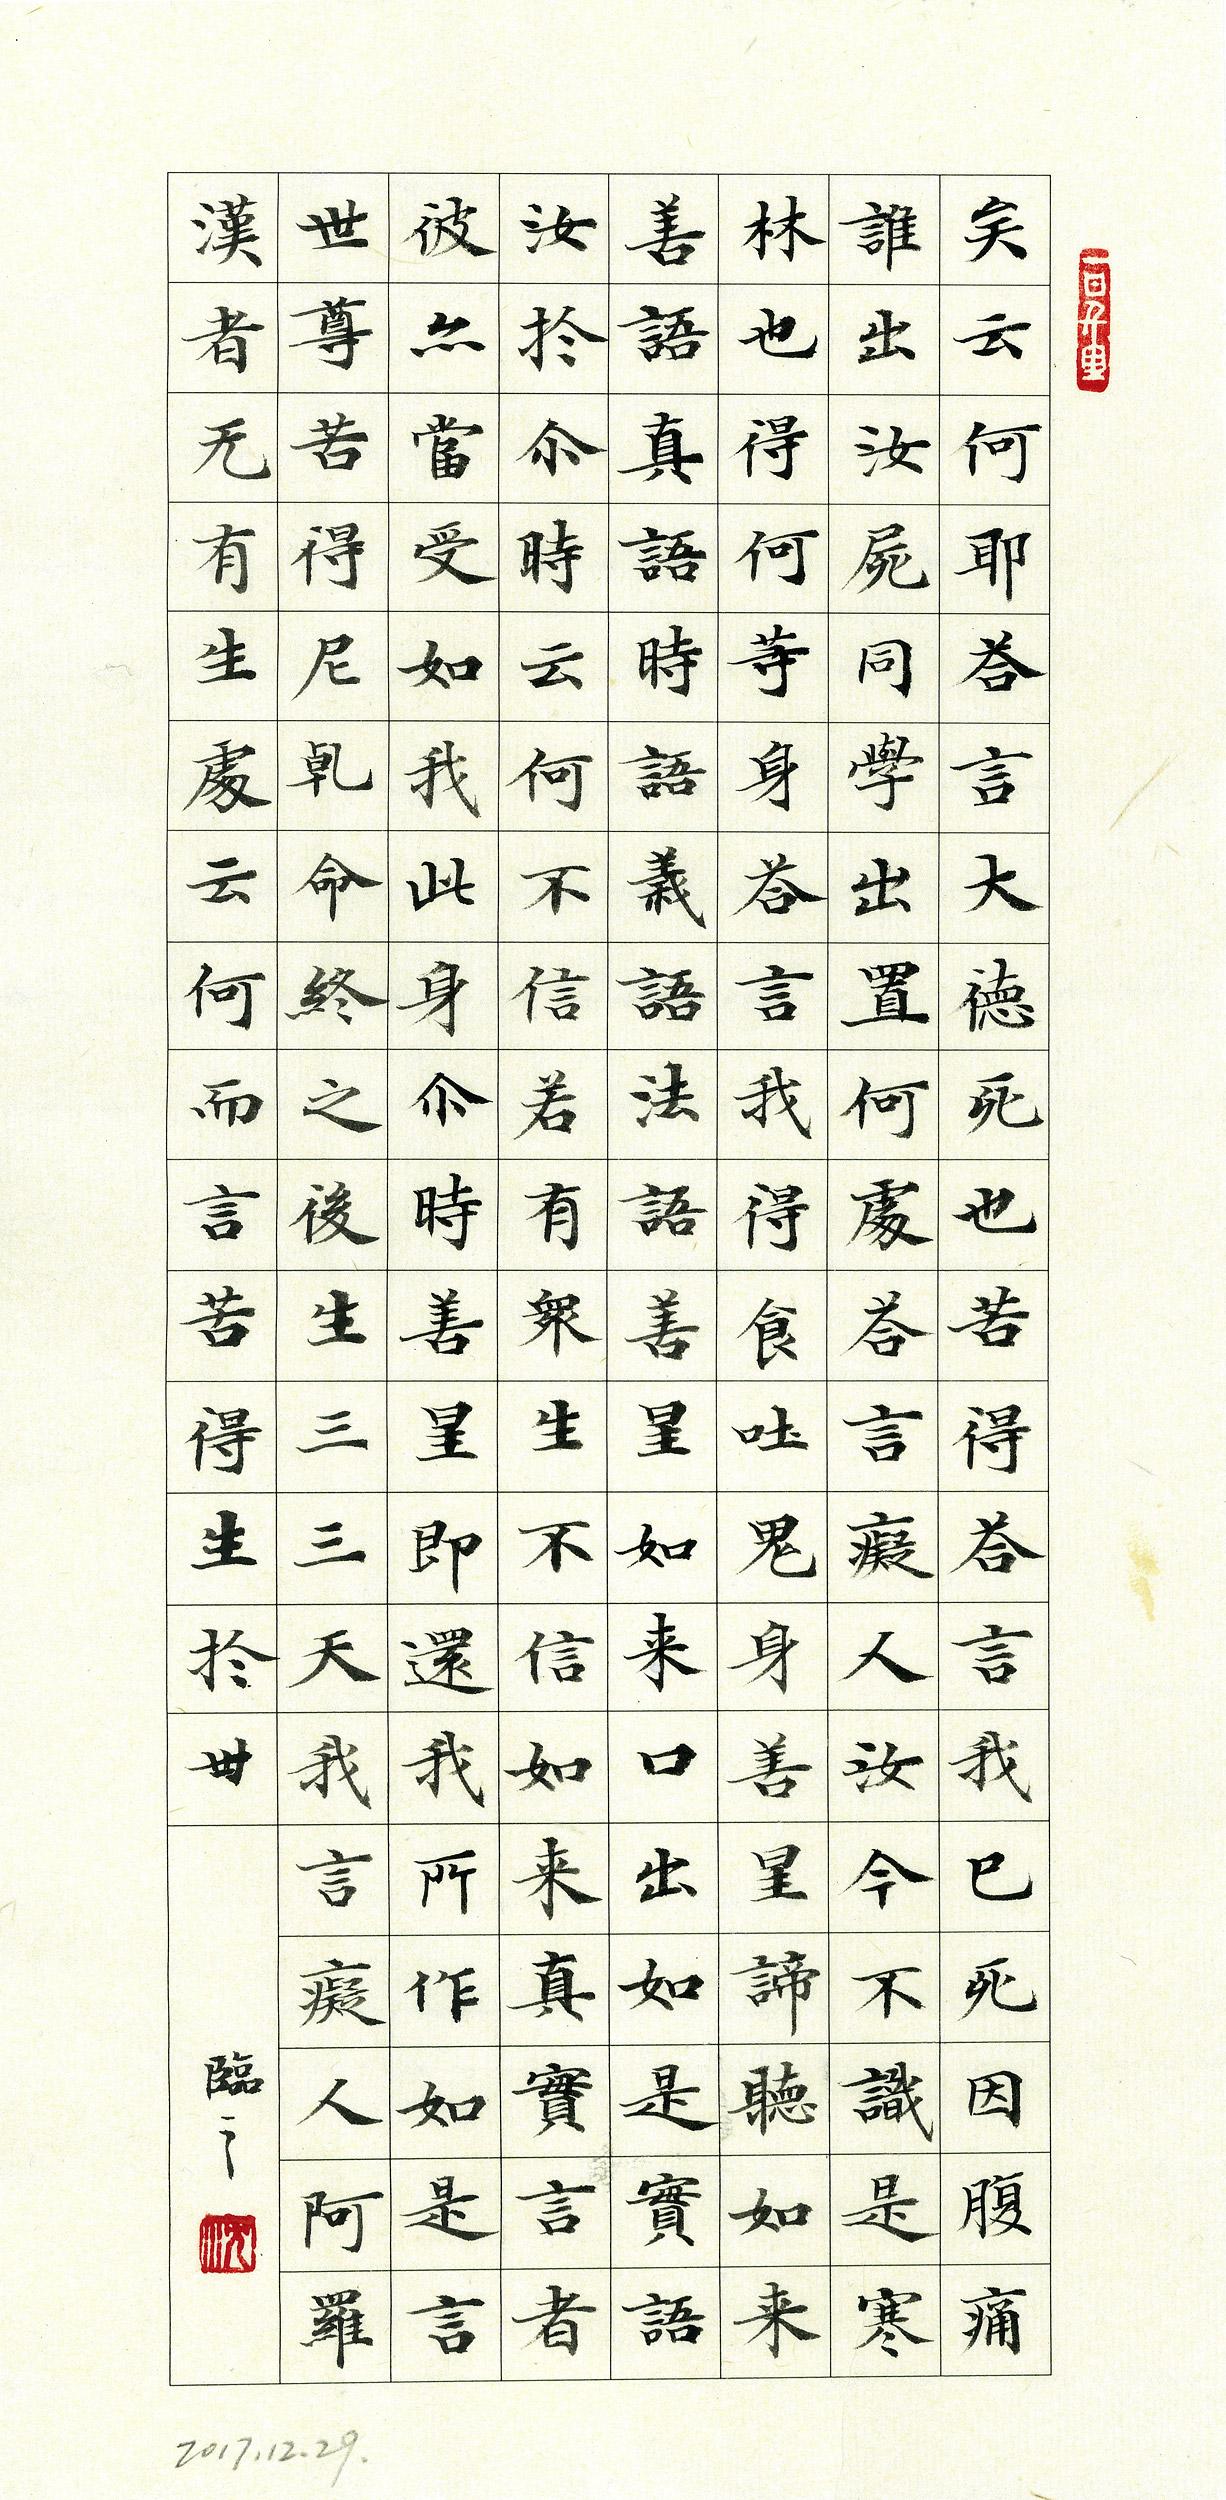 矣云何耶荅言大德死也苦得荅言我已死因腹痛
誰出汝屍同學出置何處荅言癡人汝今不識是寒
林也得何等身荅言我得食吐鬼身善星諦聽如来
善語真語時語義語法語善星如来口出如是實語
汝於尒時云何不信若有衆生不信如来真實言者
彼亦當受如我此身尒時善星即還我所作如是言
世尊苦得尼乹命終之後生三三天我言癡人阿羅
漢者无有生處云何而言苦得生於丗
臨之
一日千里
沈
2017.12.29.